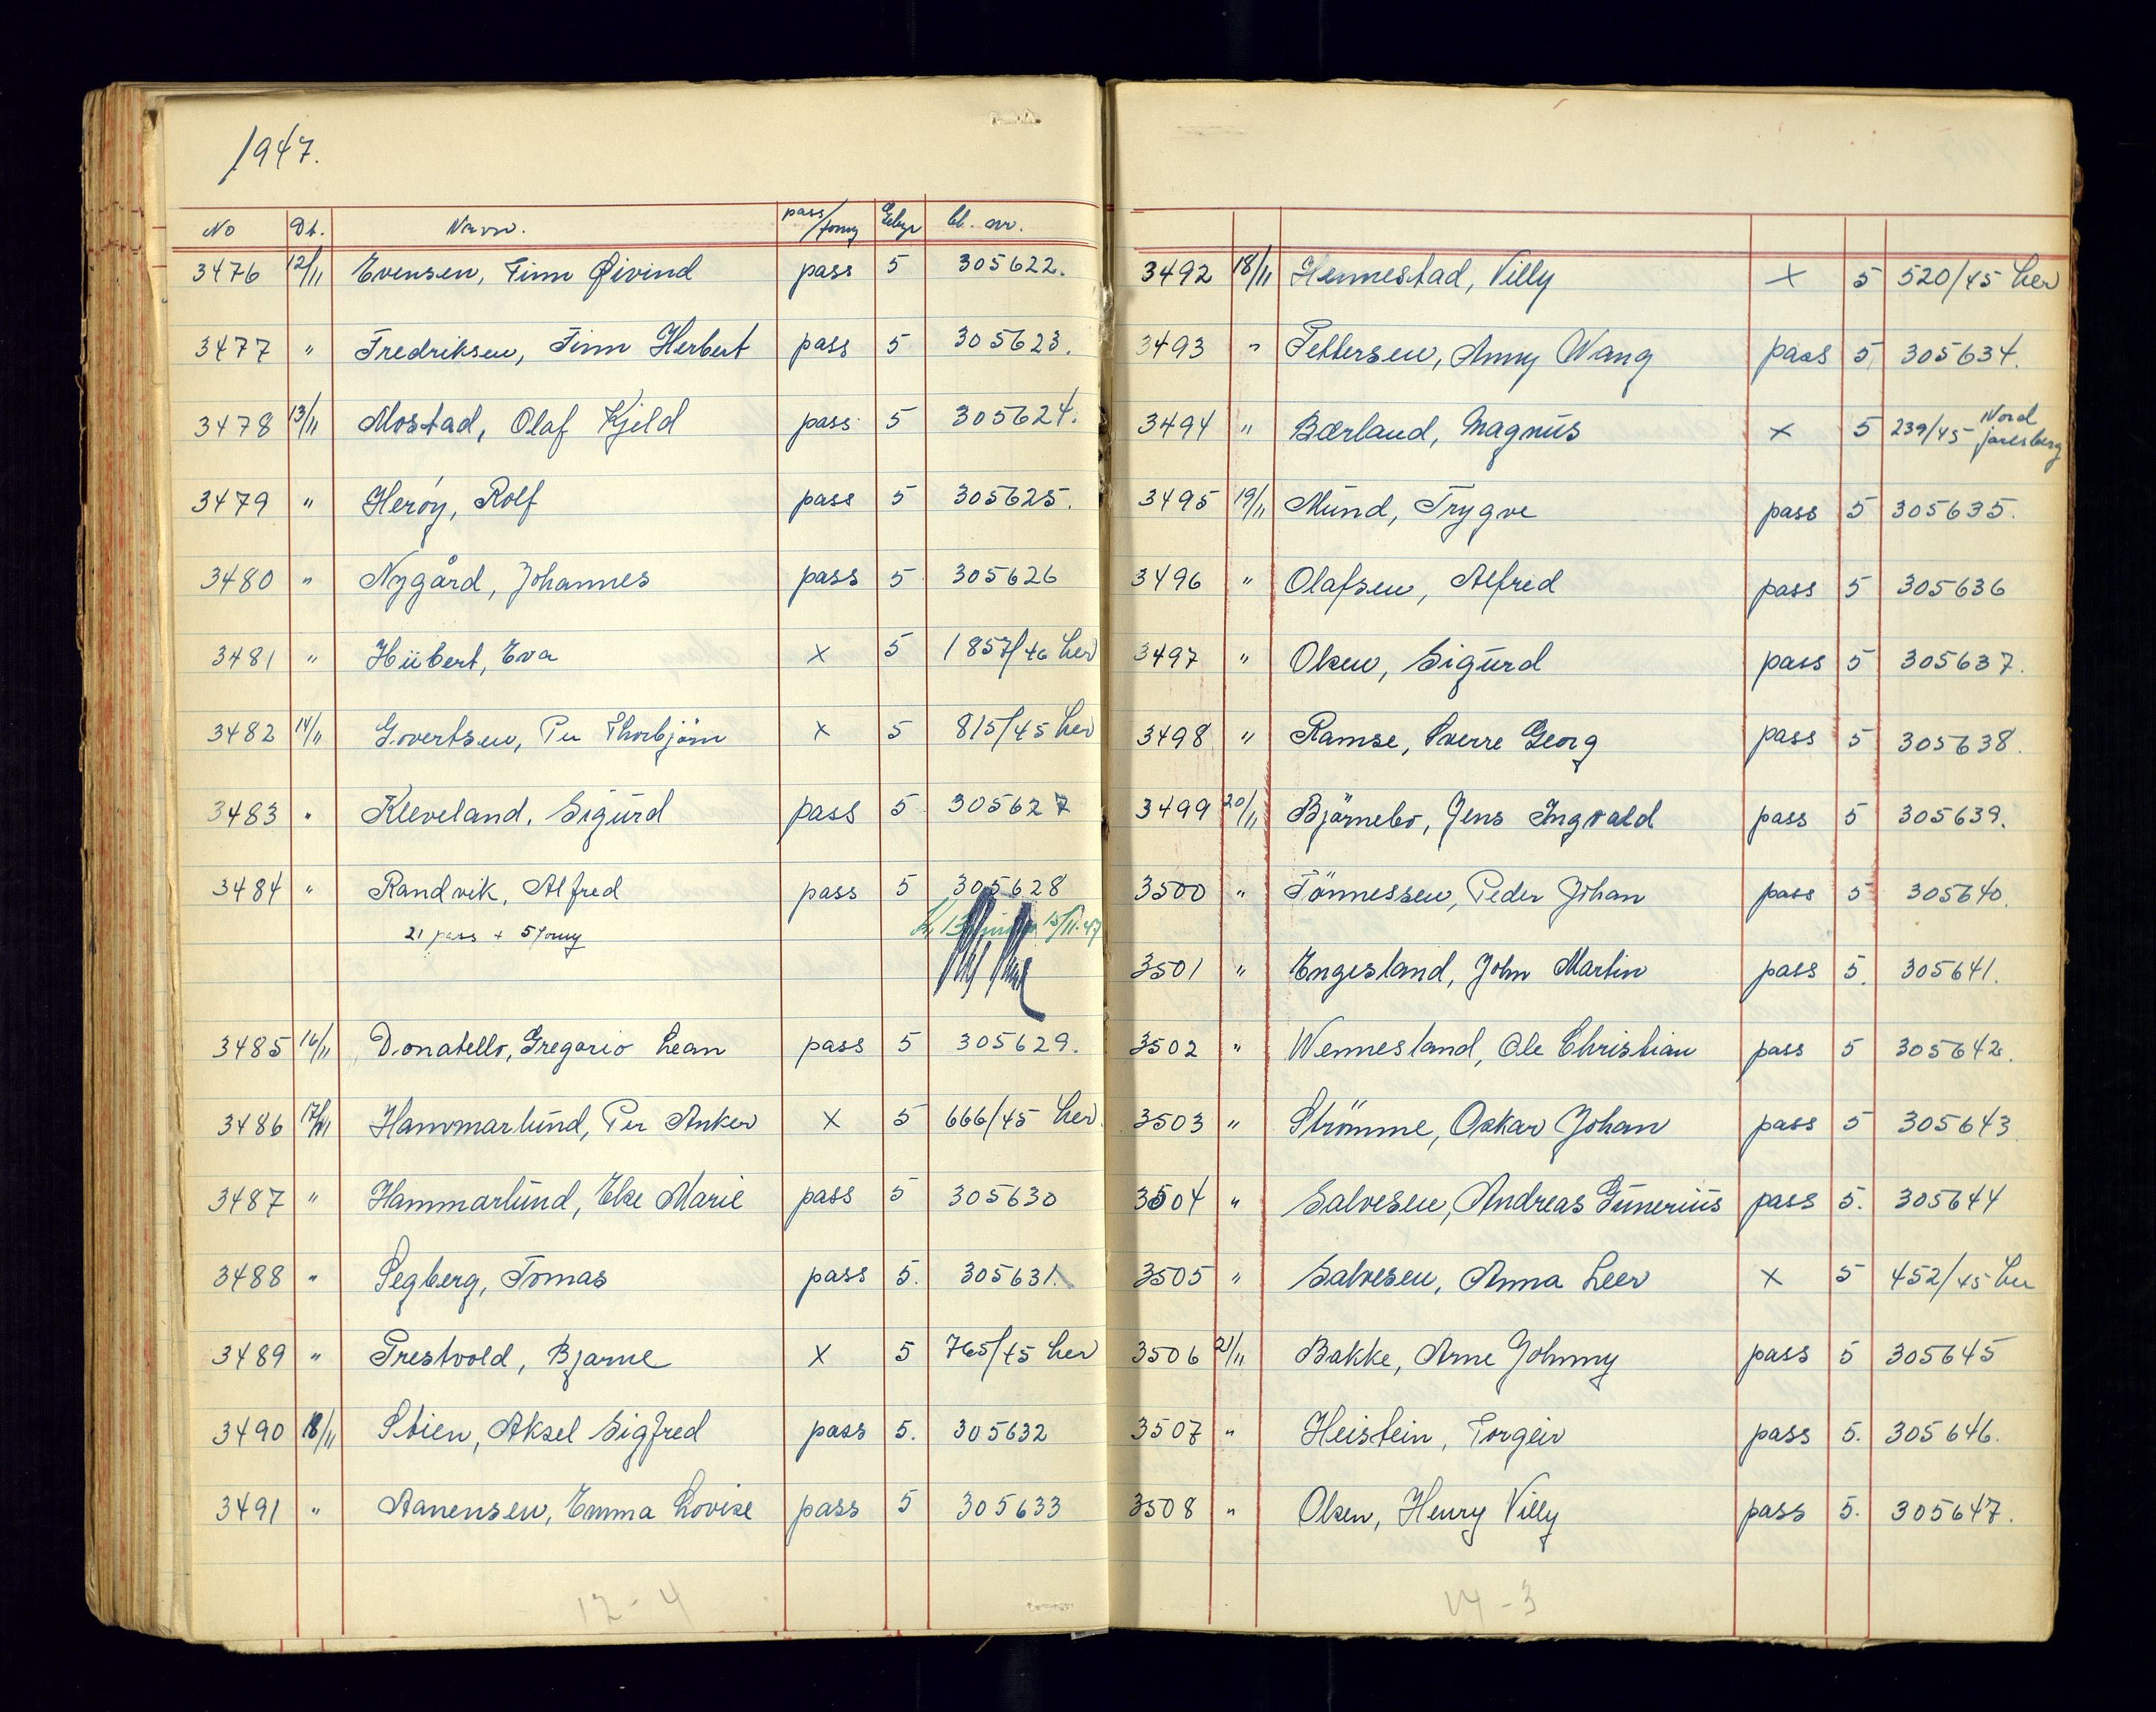 1947.
No Dt. Navn. pass/forny Gebyr bl. nr.
3476 12/11 Evensen, Finn Øivind pass 5 305622.
3477 " Fredriksen, Finn Herbert pass 5 305623.
3478 13/11 Mostad, Olaf Kjeld pass 5 305624.
3479 " Herøy, Rolf pass 5 305625.
3480 " Nygård, Johannes pass 5 305626
3481 " Hübert, Eva x 5 1857/46 her
3482 14/11 Govertsen, Per Thorbjörn x 5 815/45 her
3483 " Kleveland, Sigurd pass 5 305627
3484 " Randvik, Alfred pass 5 305628
21 pass + 5 forny
15/11-47
3485 16/11 Donatello, Gregorio Lean pass 5 305629.
3486 17/11 Hammarlund, Per Anker x 5 666/45 her
3487 " Hammarlund, Else Marie pass 5 305630
3488 " Segberg, Tomas pass 5. 305631.
3489 " Prestvold, Bjarne x 5 765/45 her
3490 18/11 Stien, Aksel Sigfred pass 5. 305632
3491 " Aanensen, Emma Lovise pass 5 305633
12-4
3492 18/11 Hennestad, Villy x 5 520/45 her
3493 " Pettersen, Anny Wang pass 5 305634.
3494 " Bærland, Magnus x 5 239/45 Nord jarlsberg
3495 19/11 Mund, Trygve pass 5 305635.
3496 " Olafsen, Alfred pass 5 305636
3497 " Olsen, Sigurd pass 5 305637.
3498 " Ramse, Sverre Georg pass 5 305638.
3499 20/11 Bjørnebo, Jens Ingvald pass 5 305639.
3500 " Tönnessen, Peder Johan pass 5 305640.
3501 " Engesland, John Martin pass 5. 305641.
3502 " Wennesland, Ole Christian pass 5 305642.
3503 " Strömme, Oskar Johan pass 5 305643
3504 " Salvesen, Andreas Gunerius pass 5. 305644
3505 " Salvesen, Anna Leer x 5 452/45 her
3506 21/11 Bakke, Arne Johnny pass 5 305645
3507 " Heistein, Torgeir pass 5. 305646.
3508 " Olsen, Henry Villy pass 5. 305647.
14-3